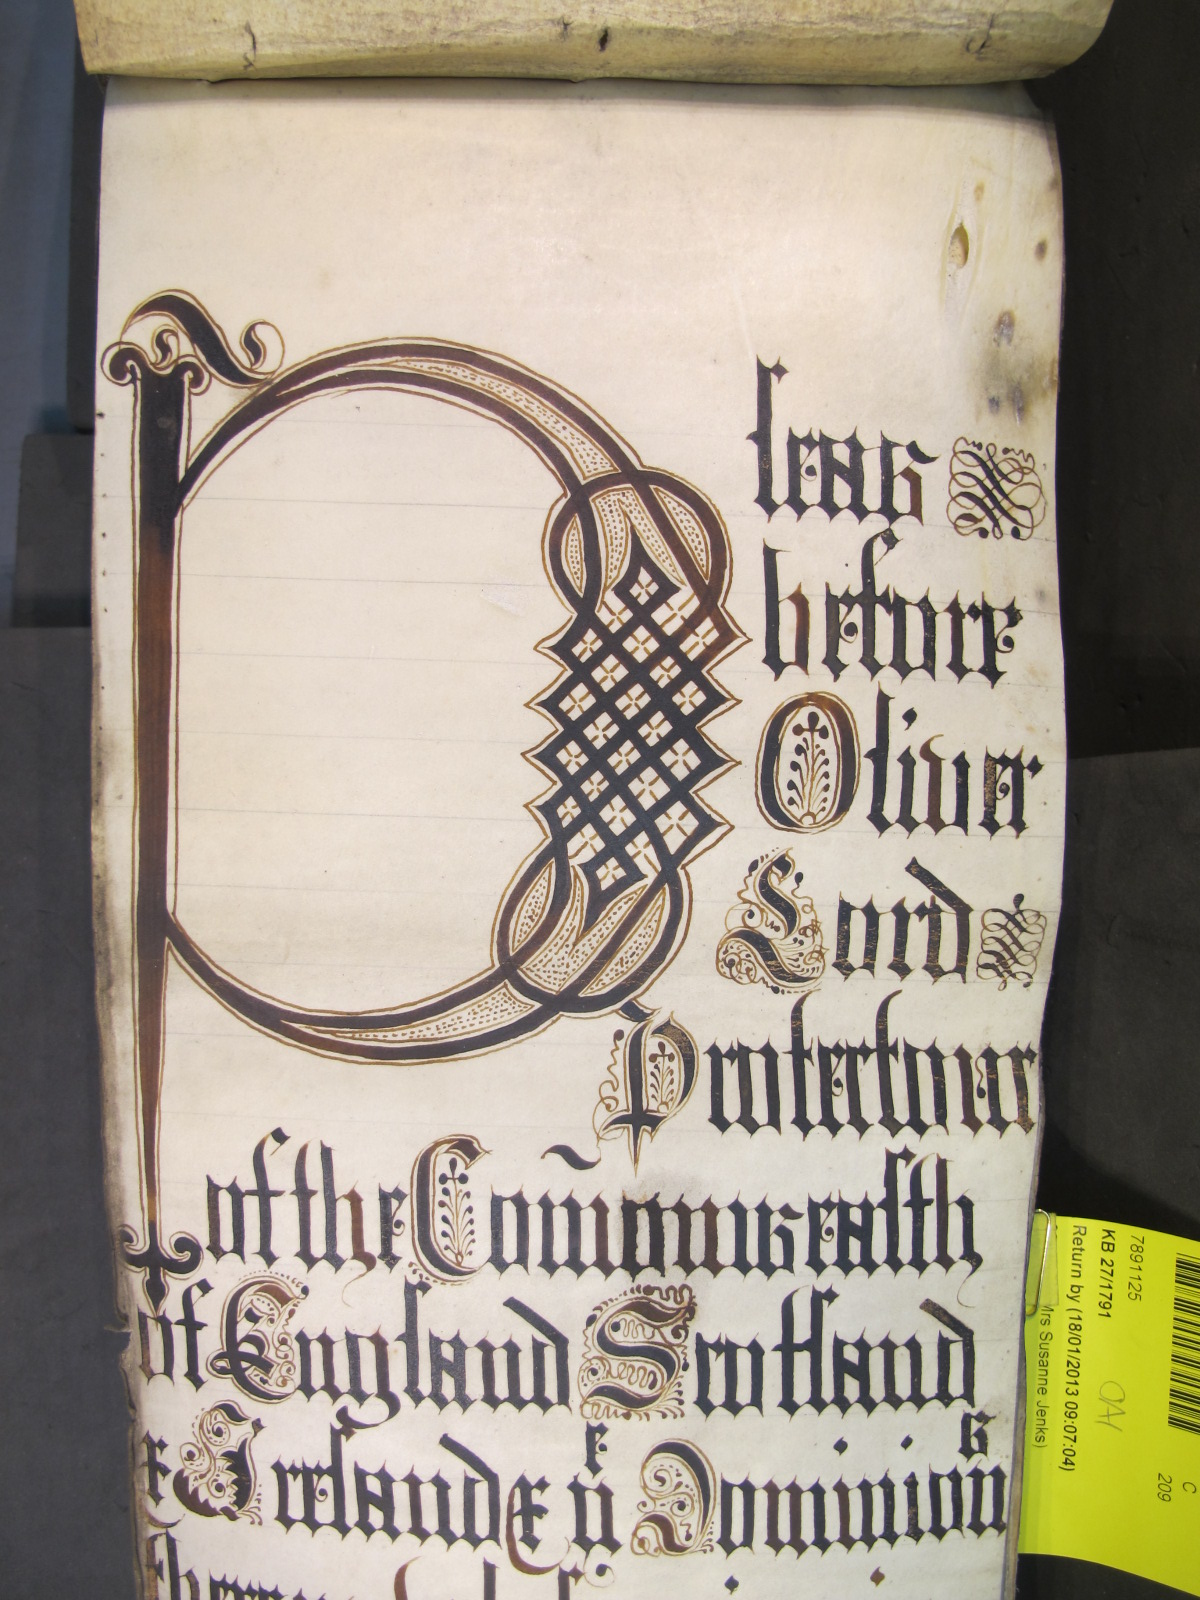 Pleas
before
Oliver
Lord
Protectour
of the Com̃onwealth
of England Scotland
& Ireland & yͤ Dominionˢ
7891125
KB 27/1791
Return by (18/01/2013 09:07:04)
Mrs Susanne Jenks)
C
209